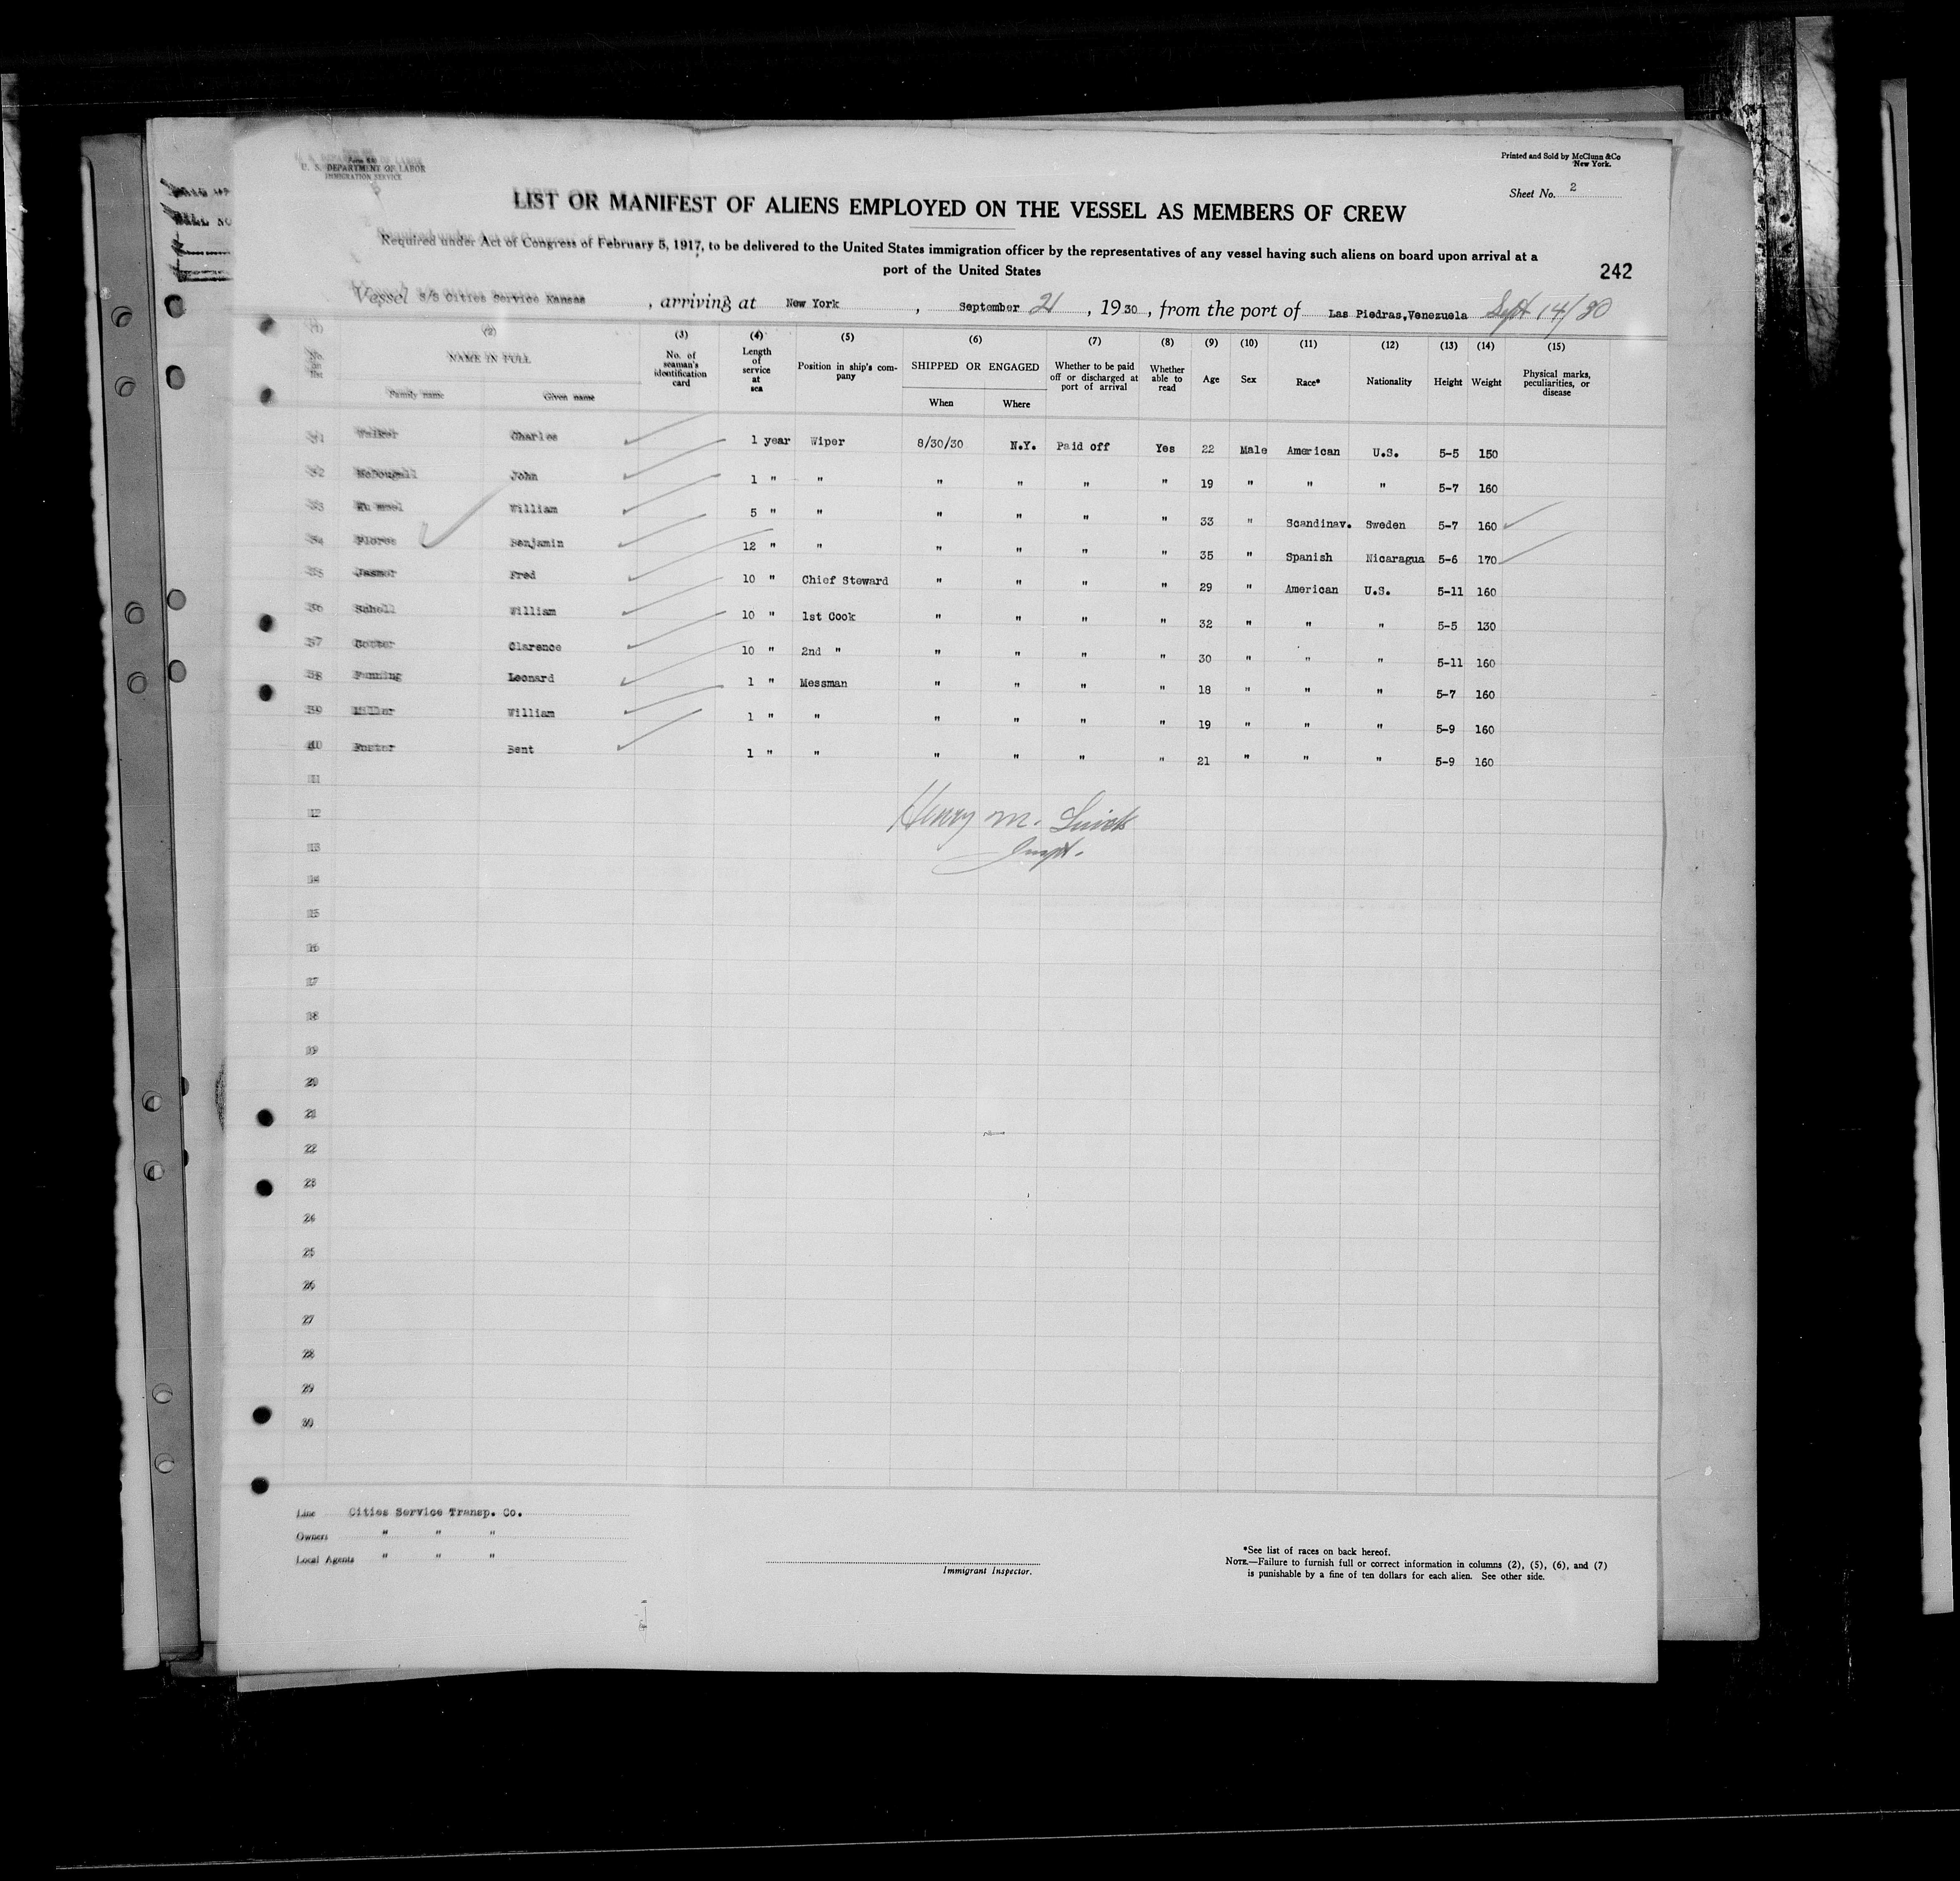 Form 680
U. S. DEPARTMENT OF LABOR
IMMIGRATION SERVICE
Printed and Sold by McClunn & Co
New York.
Sheet No. 2
LIST OR MANIFEST OF ALIENS EMPLOYED ON THE VESSEL AS MEMBERS OF CREW
Required under Act of Congress of February 5, 1917, to be delivered to the United States immigration officer by the representatives of any vessel having such aliens on board upon arrival at a
port of the United States
242
Vessel S/S Cities Service Kansas, arriving at New York, September 21, 1930, from the port of Las Piedras, Venezuela Sept 14/30
(1) (2) (3) (4) (5) (6) (7) (8) (9) (10) (11) (12) (13) (14) (15)
No. on list NAME IN FULL Family name Given name No. of seaman's identification card Length of service at sea Position in ship's company SHIPPED OR ENGAGED When Where Whether to be paid off or discharged at port of arrival Whether able to read Age Sex Race* Nationality Height Weight Physical marks, peculiarities, or disease
31 Walker Charles 1 year Wiper 8/30/30 N.Y. Paid off Yes 22 Male American U.S. 5-5 150
32 McDougall John 1 " " " " " " 19 " " " 5-7 160
33 William 5 " " " " " " 33 " Scandinav. Sweden 5-7 160
34 Flores Benjamin 12 " " " " " " 35 " Spanish Nicaragua 5-6 170
35 Fred 10 " Chief Steward " " " " 29 " American U.S. 5-11 160
36 Scholl William 10 " 1st Cook " " " " 32 " " " 5-5 130
37 Clarence 10 " 2nd " " " " " 30 " " " 5-11 160
38 Leonard 1 " Messman " " " " 18 " " " 5-7 160
39 Miller William 1 " " " " " " 19 " " " 5-9 160
40 Foster Bent 1 " " " " " " 21 " " " 5-9 160
11
12
Henry M.
13
Inspt.
14
15
16
17
18
19
20
21
22
23
24
25
26
27
28
29
30
Line Cities Service Transp. Co.
Owners " " "
Local Agents " " "
Immigrant Inspector.
*See list of races on back hereof.
NOTE.—Failure to furnish full or correct information in columns (2), (5), (6), and (7)
is punishable by a fine of ten dollars for each alien. See other side.